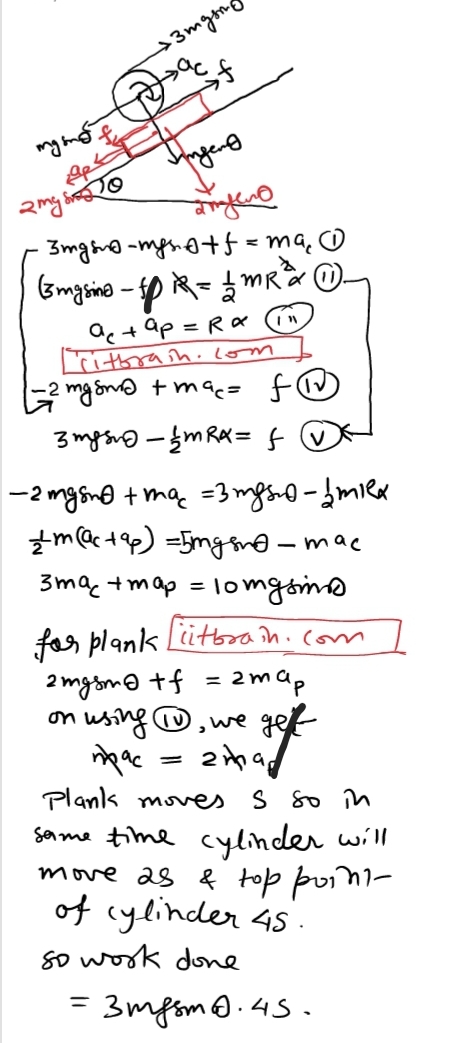 3mgsinθ
ac
f
mgsinθ
f
mgcosθ
ap
θ
2mgsinθ
2mgcosθ
3mgsinθ - mgsinθ + f = mac (i)
(3mgsinθ - f) R = ½mR²α (ii)
ac + ap = Rα (iii)
iitbrain.com
-2mgsinθ + mac = f (iv)
3mgsinθ - ½mRα = f (v)
-2mgsinθ + mac = 3mgsinθ - ½mRα
½m(ac + ap) = 5mgsinθ - mac
3mac + map = 10mgsinθ
for plank iitbrain.com
2mgsinθ + f = 2map
on using (iv), we get
mac = 2map
Plank moves S so in
same time cylinder will
move 2s & top point
of cylinder 4s.
so work done
= 3mgsinθ.4s.